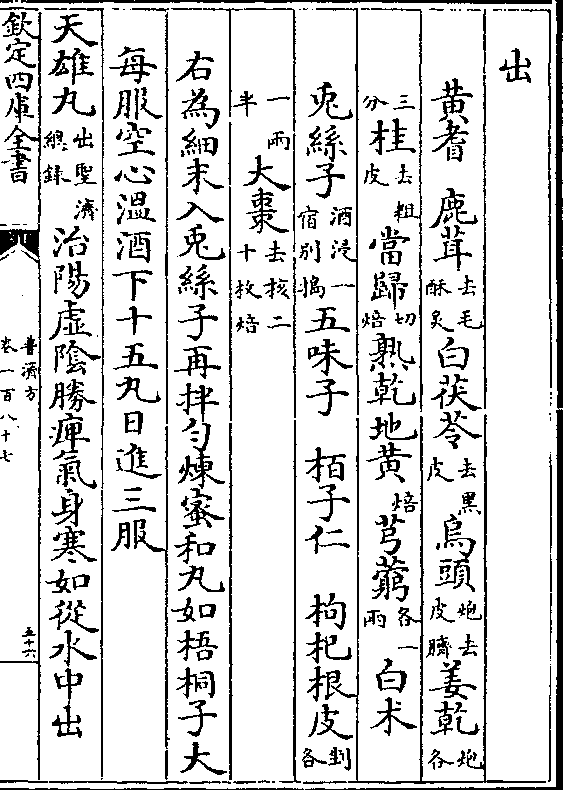 出
黄耆　鹿茸去毛酥炙白茯苓去黑皮烏頭炮去皮臍姜乾炮各
三分桂去粗皮當歸切焙熟乾地黄焙芎藭各一兩白术
兎絲子酒浸一宿别搗五味子　栢子仁　枸杞根皮剉各
一兩半大棗去核二十枚焙
右為細末入兎絲子再拌匀煉蜜和丸如梧桐子大
每服空心溫酒下十五丸日進三服
天雄丸出聖濟總錄治陽虛陰勝痺氣身寒如從水中出
欽定四庫全書
普濟方
卷一百八十七
五十六